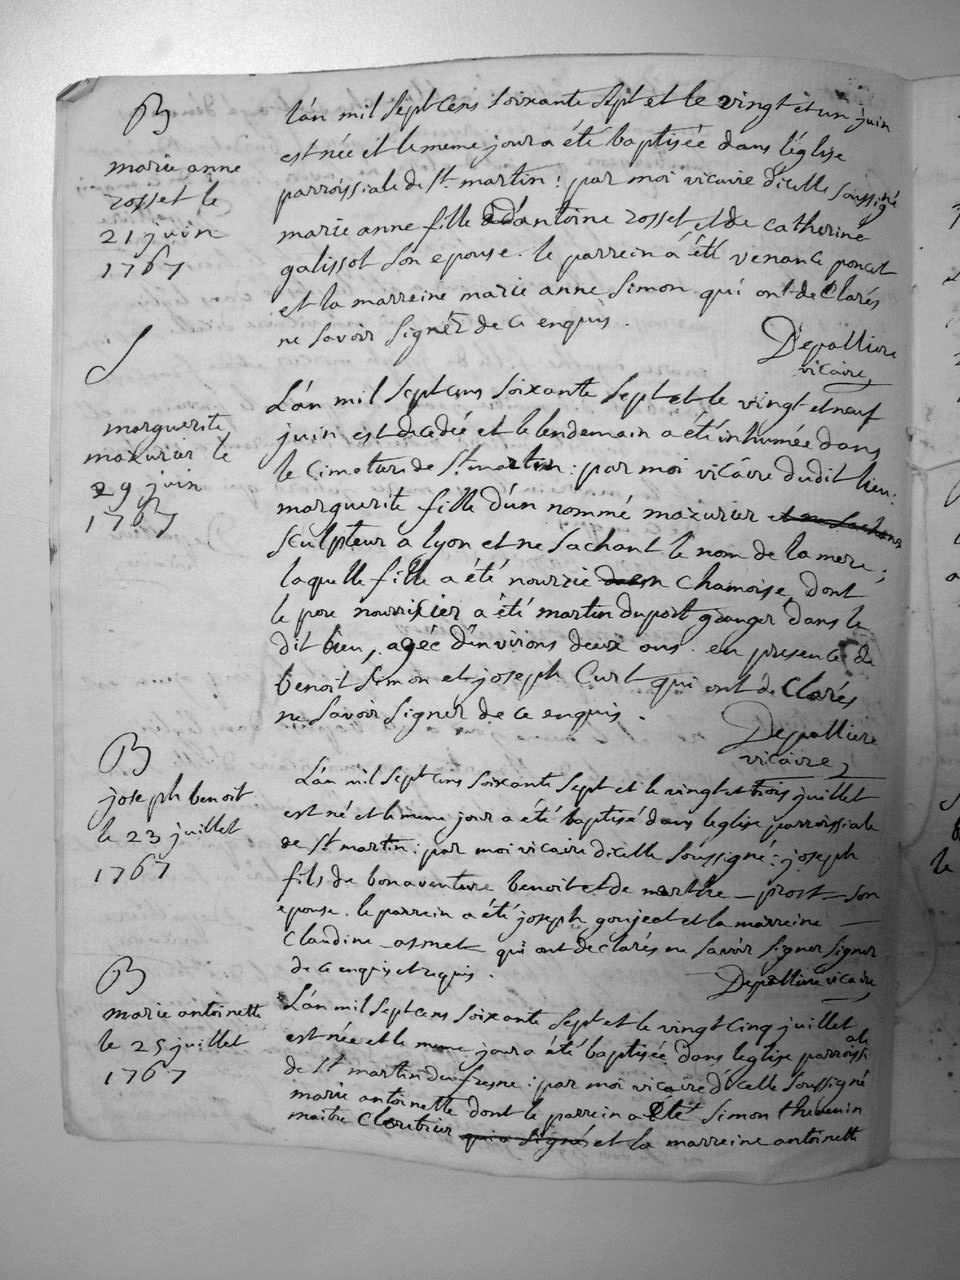 B
marie anne
rosset le
21 juin
1767
L'an mil sept cens soixante sept et le vingt et un juin
est née et le meme jour a été baptisée dans l'églize
parroissiale de St martin : par moi vicaire d'icelle soussigné
marie anne fille d'antoine rosset et de catherine
galissot son epouse. le parrein a été venant poncet
et la marreine marie anne Simon qui ont declarés
ne savoir signer de ce enquis.
Depalliere
vicaire
S
marguerite
mazurier le
29 juin
1767
L'an mil sept cens soixante sept et le vingt et neuf
juin est decedée et le lendemain a été inhumée dans
le cimetiere de St martin : par moi vicaire dudit lieu :
marguerite fille d'un nommé mazurier et ne sachant
sculpteur a lyon et ne sachant le nom de la mere ;
laquelle fille a été nourrie en chamoise, dont
le pere nourricier a été martin duport granger dans le
dit lieu, agée d'environs deux ans. en presence de
benoit Simon et joseph Curt qui ont declarés
ne savoir signer de ce enquis.
Depalliere
vicaire
B
joseph benoit
le 23 juillet
1767
L'an mil sept cens soixante sept et le vingt et trois juillet
est né et le meme jour a été baptisé dans leglise parroissiale
de St martin : par moi vicaire dicelle soussigné : joseph
fils de bonaventure benoit et de marthe - prost - son
epouse. le parrein a été joseph goujeot et la marreine
Claudine qui ont declarés ne savoir signer signer
de ce enquis et requis.
Depalliere vicaire
B
marie antoinette
le 25 juillet
1767
L'an mil sept cens soixante sept et le vingt cinq juillet
est née et le meme jour a été baptisée dans leglise parroissiale
de St martin du fresne : par moi vicaire d'icelle soussigné
marie antoinette dont le parrein a été Simon thévenin
maitre qui a signé et la marreine antoinette